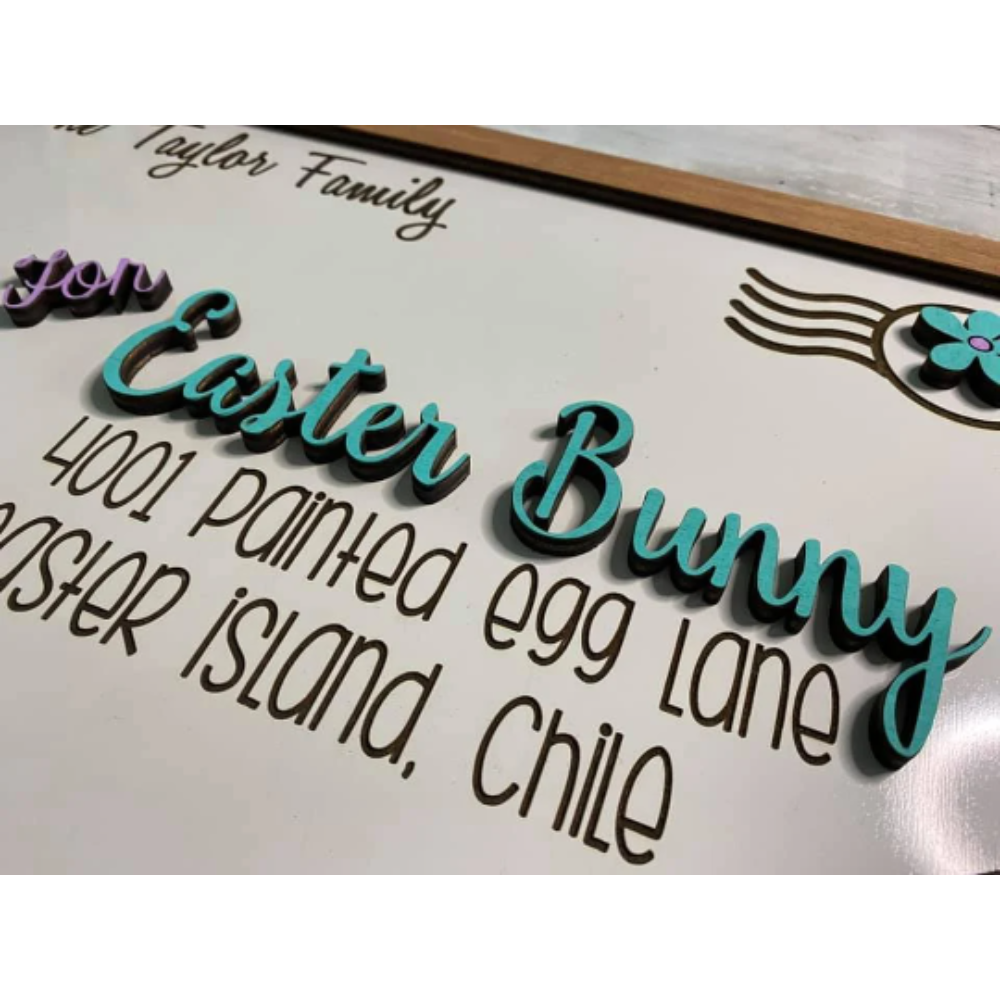 Taylor Family
for Easter Bunny
4001 Painted Egg Lane
Easter Island, Chile